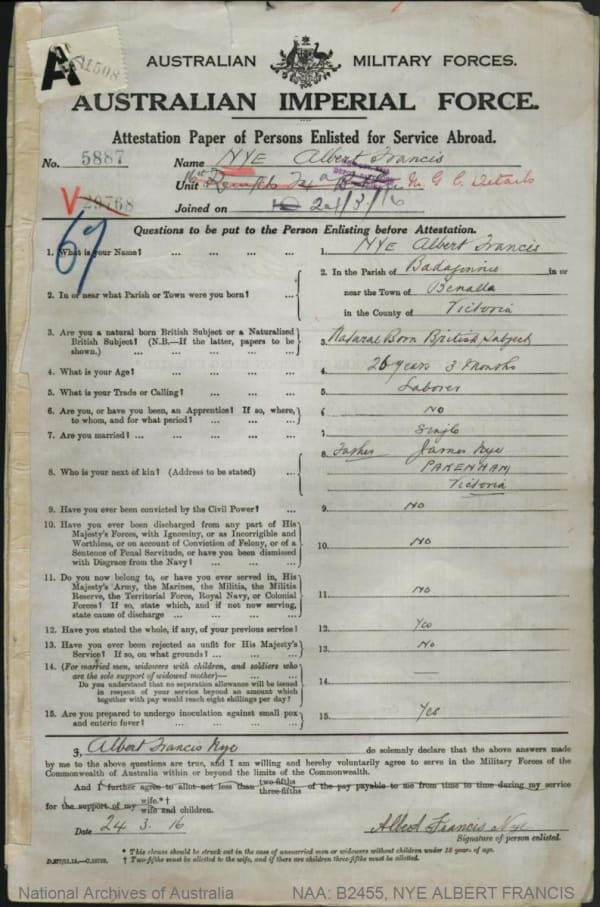 A
41508
AUSTRALIAN MILITARY FORCES.
AUSTRALIAN IMPERIAL FORCE.
Attestation Paper of Persons Enlisted for Service Abroad.
No. 5887 Name NYE Albert Francis
Unit M. G. C. Details
V 29768
Joined on 24/3/16
67
Questions to be put to the Person Enlisting before Attestation.
1. What is your Name? ... ... ... ... 1. NYE Albert Francis
2. In or near what Parish or Town were you born? ... 2. In the Parish of Badaginnie in or
near the Town of Benalla
in the County of Victoria
3. Are you a natural born British Subject or a Naturalized British Subject? (N.B.—If the latter, papers to be shown.) ... ... ... ... 3. Natural Born British Subject
4. What is your Age? ... ... ... ... 4. 26 years 3 Months
5. What is your Trade or Calling? ... ... ... 5. Laborer
6. Are you, or have you been, an Apprentice? If so, where, to whom, and for what period? ... ... ... 6. NO
7. Are you married? ... ... ... ... 7. Single
8. Who is your next of kin? (Address to be stated) ... 8. Father James Nye
PAKENHAM
Victoria
9. Have you ever been convicted by the Civil Power? ... 9. NO
10. Have you ever been discharged from any part of His Majesty's Forces, with Ignominy, or as Incorrigible and Worthless, or on account of Conviction of Felony, or of a Sentence of Penal Servitude, or have you been dismissed with Disgrace from the Navy? ... ... ... 10. NO
11. Do you now belong to, or have you ever served in, His Majesty's Army, the Marines, the Militia, the Militia Reserve, the Territorial Force, Royal Navy, or Colonial Forces? If so, state which, and if not now serving, state cause of discharge ... ... ... ... 11. NO
12. Have you stated the whole, if any, of your previous service? 12. Yes
13. Have you ever been rejected as unfit for His Majesty's Service? If so, on what grounds? ... ... ... 13. No
14. (For married men, widowers with children, and soldiers who are the sole support of widowed mother)—
Do you understand that no separation allowance will be issued in respect of your service beyond an amount which together with pay would reach eight shillings per day? 14. —
15. Are you prepared to undergo inoculation against small pox and enteric fever? ... ... ... ... 15. Yes
I, Albert Francis Nye do solemnly declare that the above answers made
by me to the above questions are true, and I am willing and hereby voluntarily agree to serve in the Military Forces of the
Commonwealth of Australia within or beyond the limits of the Commonwealth.
And I further agree to allot not less than two-fifths three-fifths of the pay payable to me from time to time during my service
for the support of my wife.*† wife and children.
Date 24. 3. 16 Albert Francis Nye
Signature of person enlisted.
* This clause should be struck out in the case of unmarried men or widowers without children under 18 years of age.
† Two-fifths must be allotted to the wife, and if there are children three-fifths must be allotted.
National Archives of Australia NAA: B2455, NYE ALBERT FRANCIS